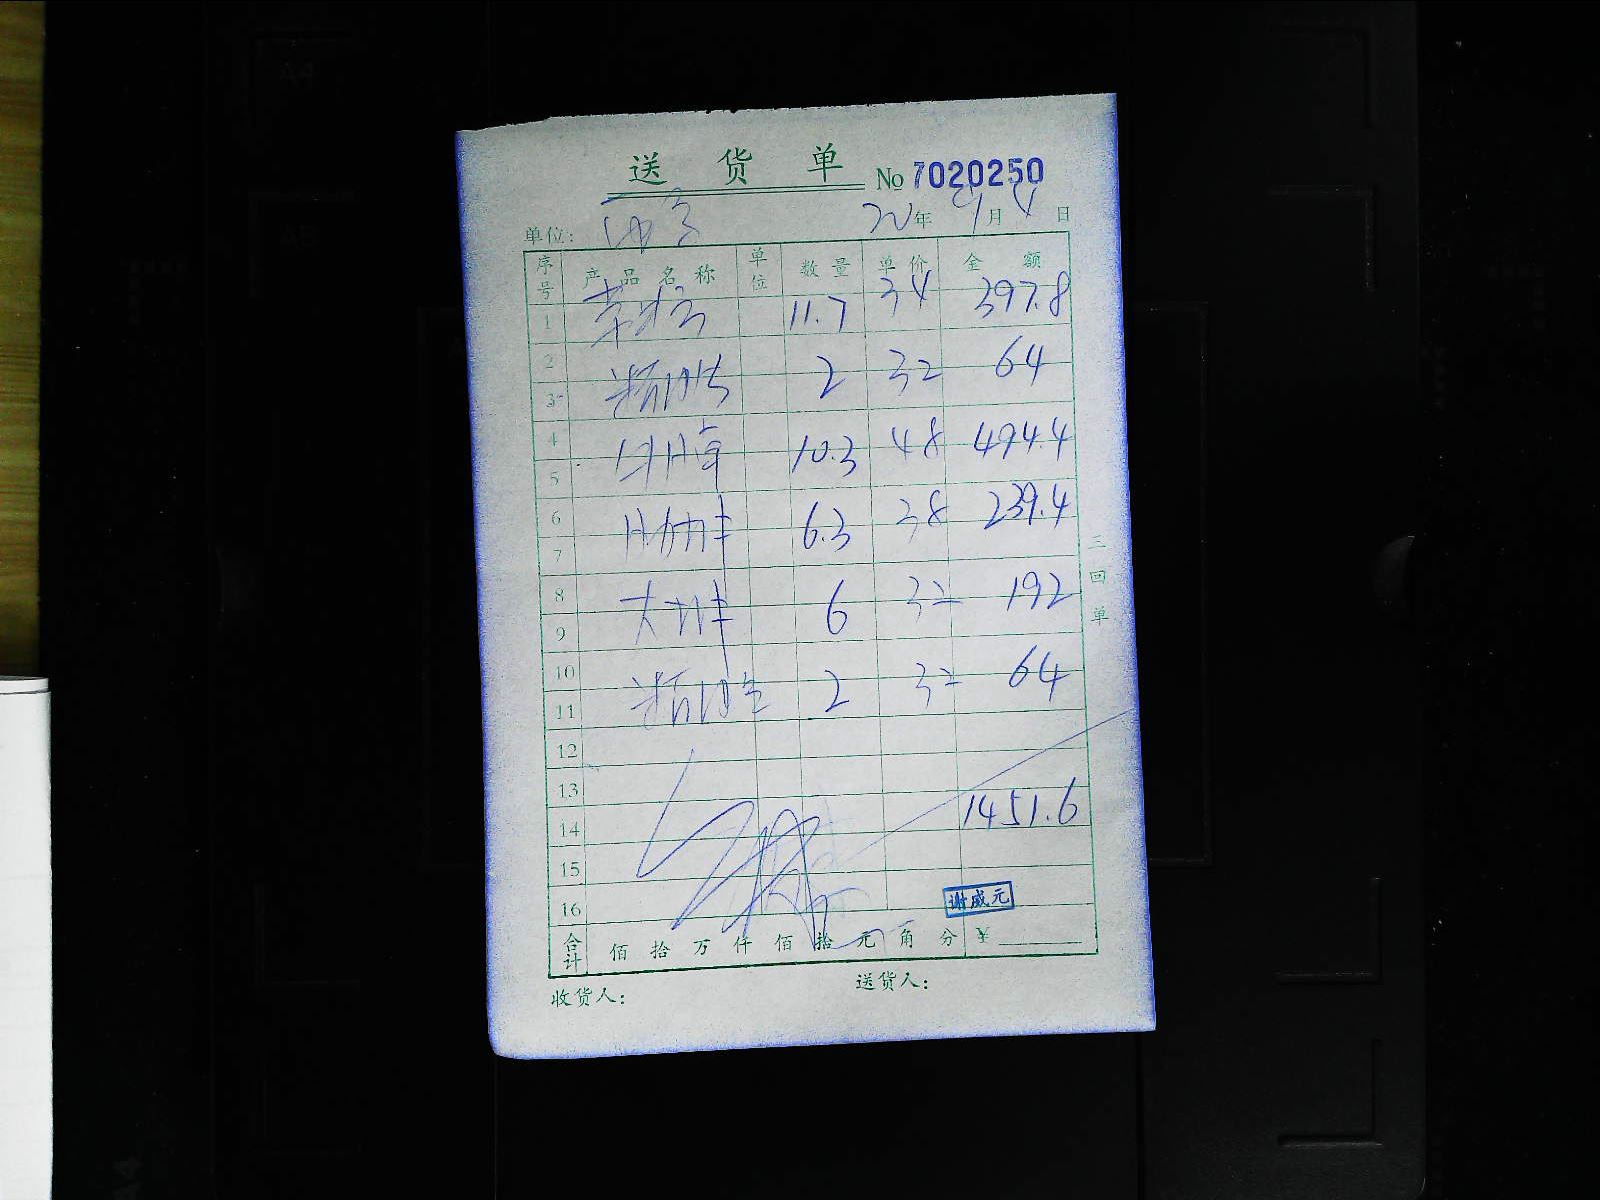 送货单 No 7020250
单位: 20年9月4日
序号 产品名称 单位 数量 单价 金额
1 11.7 34 397.8
2 精肉 2 32 64
3
4 10.3 48 494.4
5
6 6.3 38 239.4
7
8 大排 6 32 192
9
10 精肉 2 32 64
11
12
13
14 1451.6
15
16
谢威元
合计 佰 拾 万 仟 佰 拾 元 角 分 ¥
收货人: 送货人:
三回单